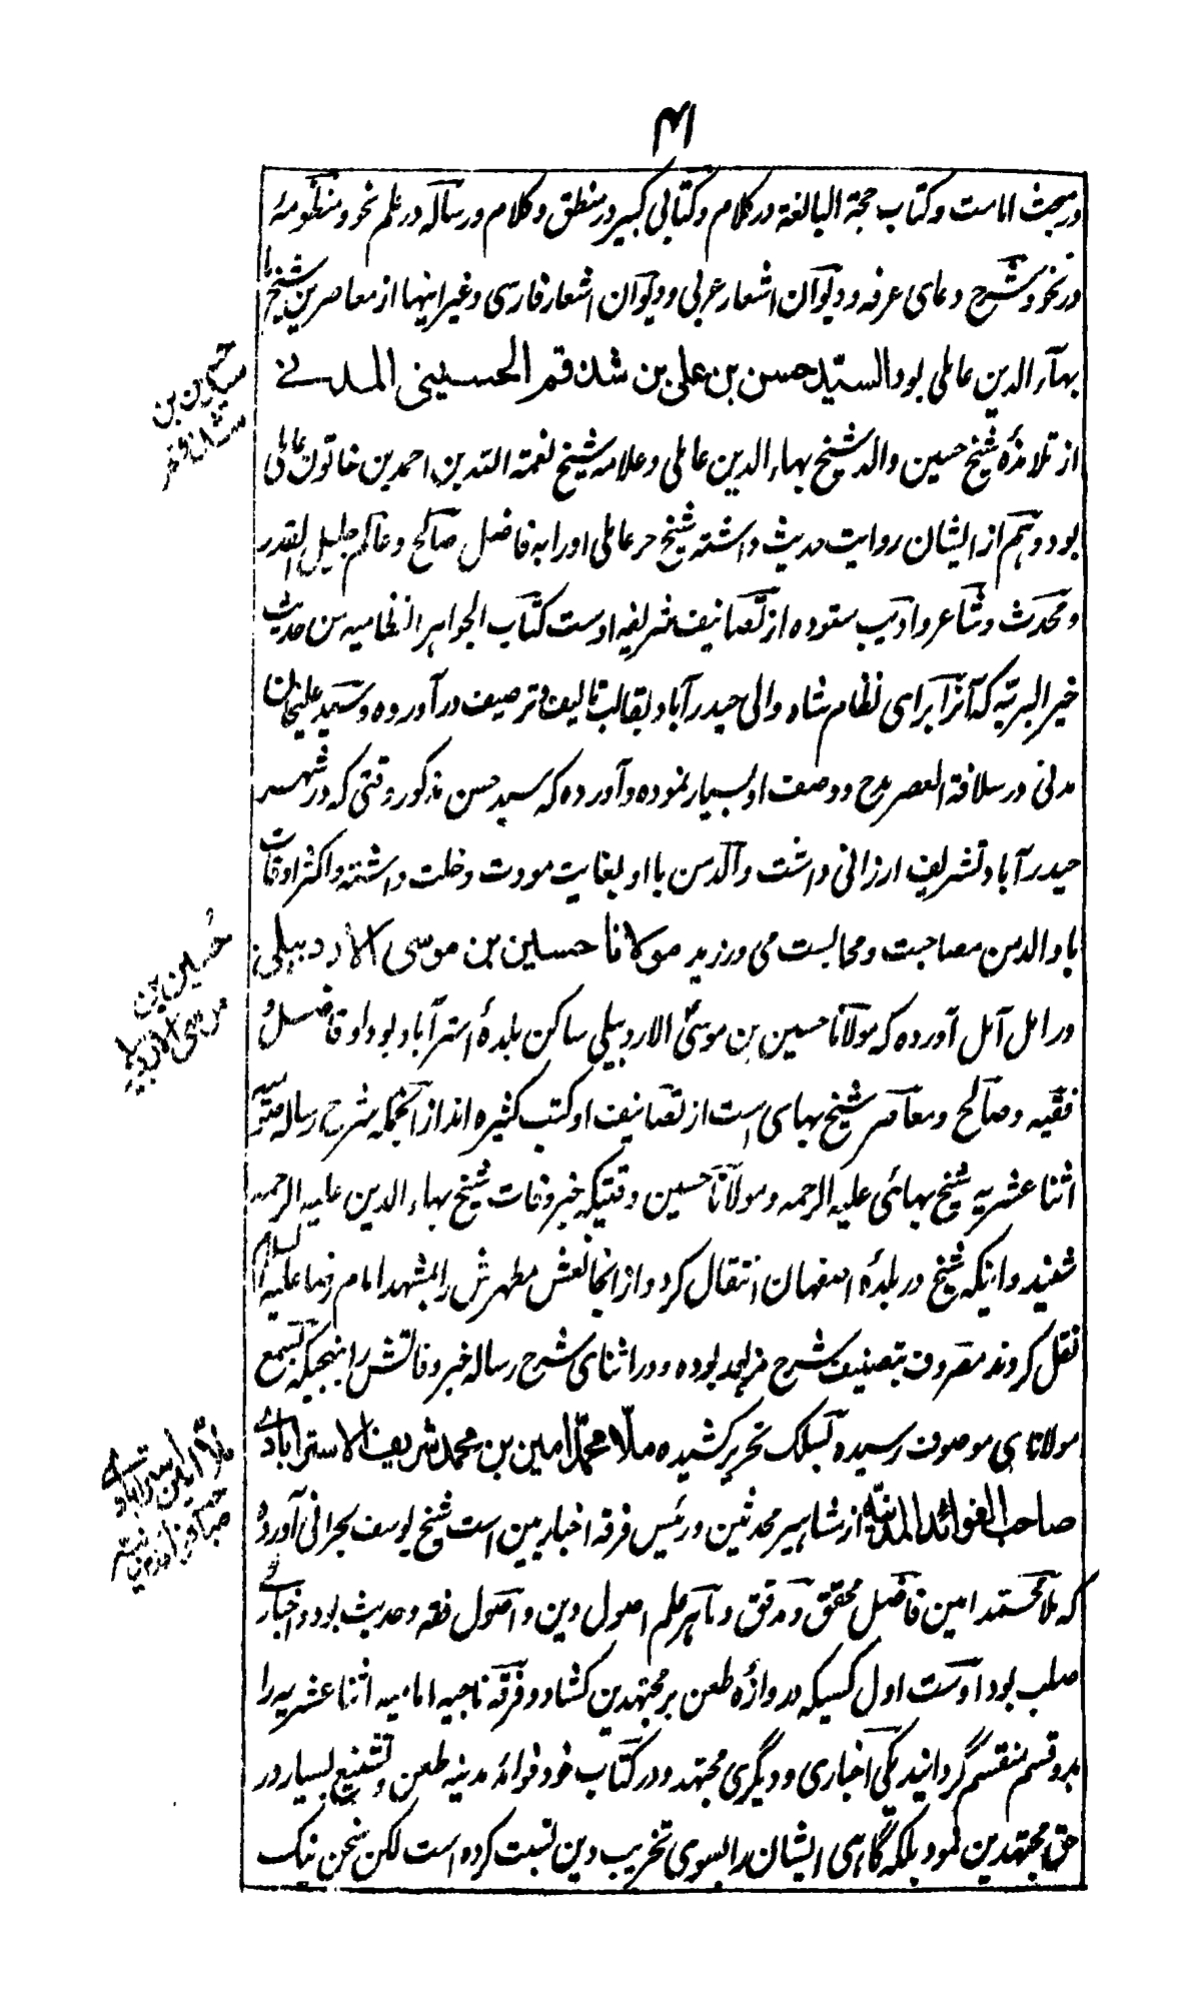 ۴۱
در مبحث امامت و کتاب حجة البالغة در کلام و کتابی کبیر در منطق و کلام و رساله در علم نحو و منظومهٔ
در نحو و شرح دعای عرفه و دیوان اشعار عربی و دیوان اشعار فارسی و غیر اینها از معاصرین شیخ
بهآء الدین عاملی بود السیّد حسن بن علی بن شدقم الحسینی المدنے
حسن بن
شدقم
از تلامذهٔ شیخ حسین والد شیخ بهاء الدین عاملی و علامه شیخ نعمة الله بن احمد بن خاتون عاملی
بود و هم از ایشان روایت حدیث داشته شیخ حر عاملی او را به فاضل صالح و عالم جلیل القدر
و محدث و شاعر و ادیب ستوده از تصانیف شریفه اوست کتاب الجواهر النظامیه من حدیث
خیر البریّه که آنرا برای نظام شاه والی حیدرآباد بقالب تالیف و ترصیف در آورده و سید علیخان
مدنی در سلافة العصر مدح و وصف او بسیار نموده و آورده که سید حسن مذکور وقتی که در شهر
حیدرآباد تشریف ارزانی داشت والد من با او بغایت مودت و خلت داشته و اکثر اوقات
با والد من مصاحبت و مجالست می ورزید مولانا حسین بن موسی الاردبیلی
حُسین بن
موسی الاردبیلے
در امل آمل آورده که مولانا حسین بن موسیٰ الاردبیلی ساکن بلدهٔ استرآباد بود او فاضل و
فقیه و صالح و معاصر شیخ بهای است از تصانیف او کتب کثیره اند از انجمله شرح رساله صومیه
اثنا عشریه شیخ بهائی علیه الرحمه و مولانا حسین وقتیکه خبر وفات شیخ بهاء الدین علیه الرحمه
شنید و اینکه شیخ در بلدهٔ اصفهان انتقال کرد و از انجا نعش مطهرش را بمشهد امام رضا علیه السلام
نقل کردند مصروف بتصنیف شرح مزبور بوده و در اثنای شرح رساله خبر وفاتش را بنهجیکه بسمع
مولانای موصوف رسیده بسلک تحریر کشیده ملا محمّد امین بن محمد شریف الاسترابادے
ملّا امین استرابادے
صاحب فوائد مدنیه
صاحب الفوائد المدنیّه از مشاهیر محدثین و رئیس فرقه اخباریین است شیخ یوسف بحرانی آورده
که ملا محمد امین فاضل محقق و مدقق و ماهر علم اصول دین و اصول فقه و حدیث بود و اخبارے
صلب بود اوست اول کسیکه دروازهٔ طعن بر مجتهدین کشاد و فرقه ناجیه امامیه اثنا عشریه را
بدو قسم منقسم گردانید یکی اخباری و دیگری مجتهد و در کتاب خود فوائد مدنیه طعن و تشنیع بسیار در
حق مجتهدین نمود بلکه گاهی ایشان را بسوی تخریب دین نسبت کرده است لکن سخن نیک